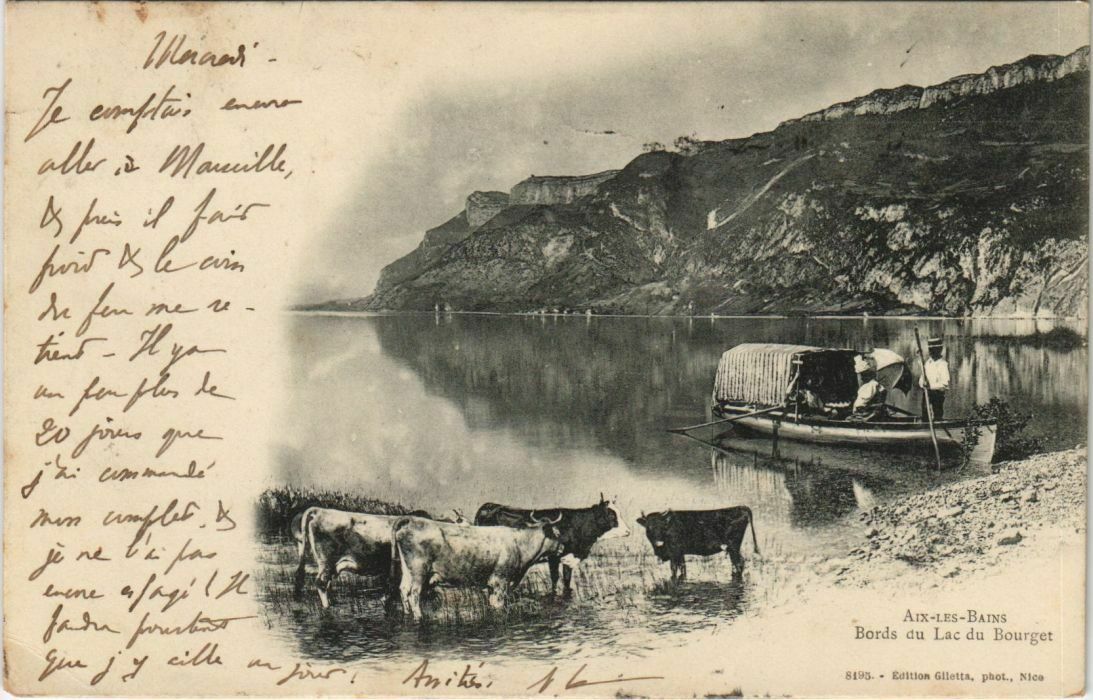 Mercredi -
Je comptais encore
aller à Marseille,
& puis il fait
froid & le coin
du feu me re-
tient - Il y a
un peu plus de
20 jours que
j'ai commandé
mon complet, &
je ne l'ai pas
encore essayé ! Il
faudra pourtant
que j'y aille un jour. Amitiés.
AIX-LES-BAINS
Bords du Lac du Bourget
8195. - Édition Giletta, phot., Nice